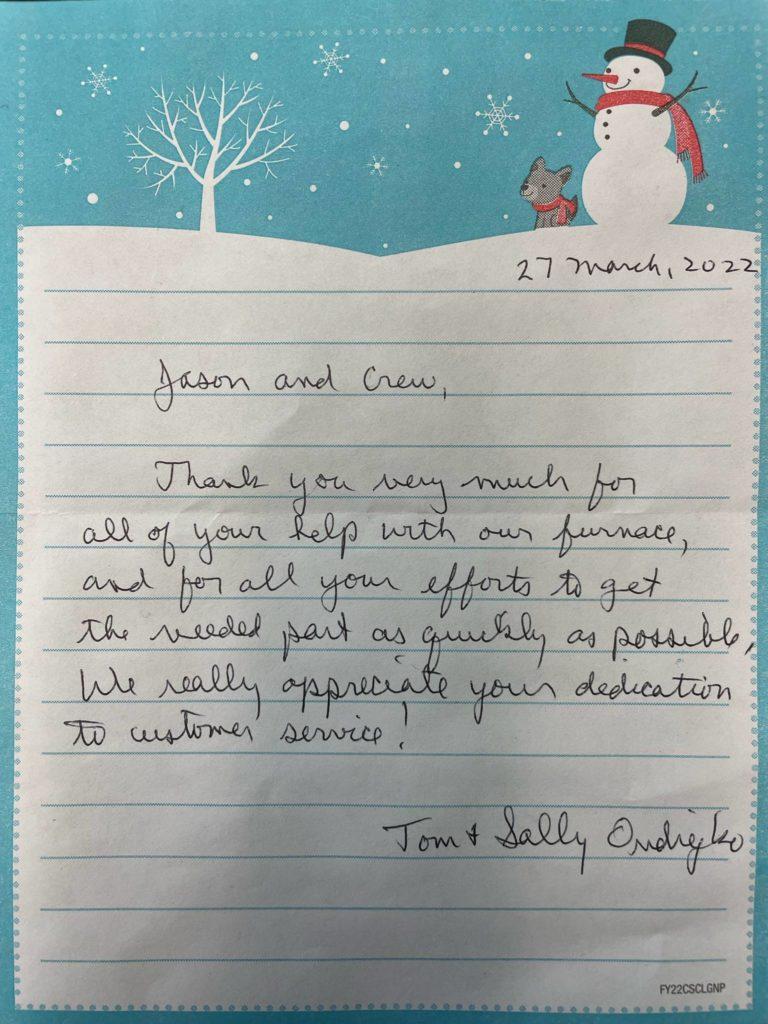 27 March, 2022
Jason and Crew,
Thank you very much for
all of your help with our furnace,
and for all your efforts to get
the needed part as quickly as possible,
We really appreciate your dedication
to customer service!
Tom + Sally
FY22CSCLGNP